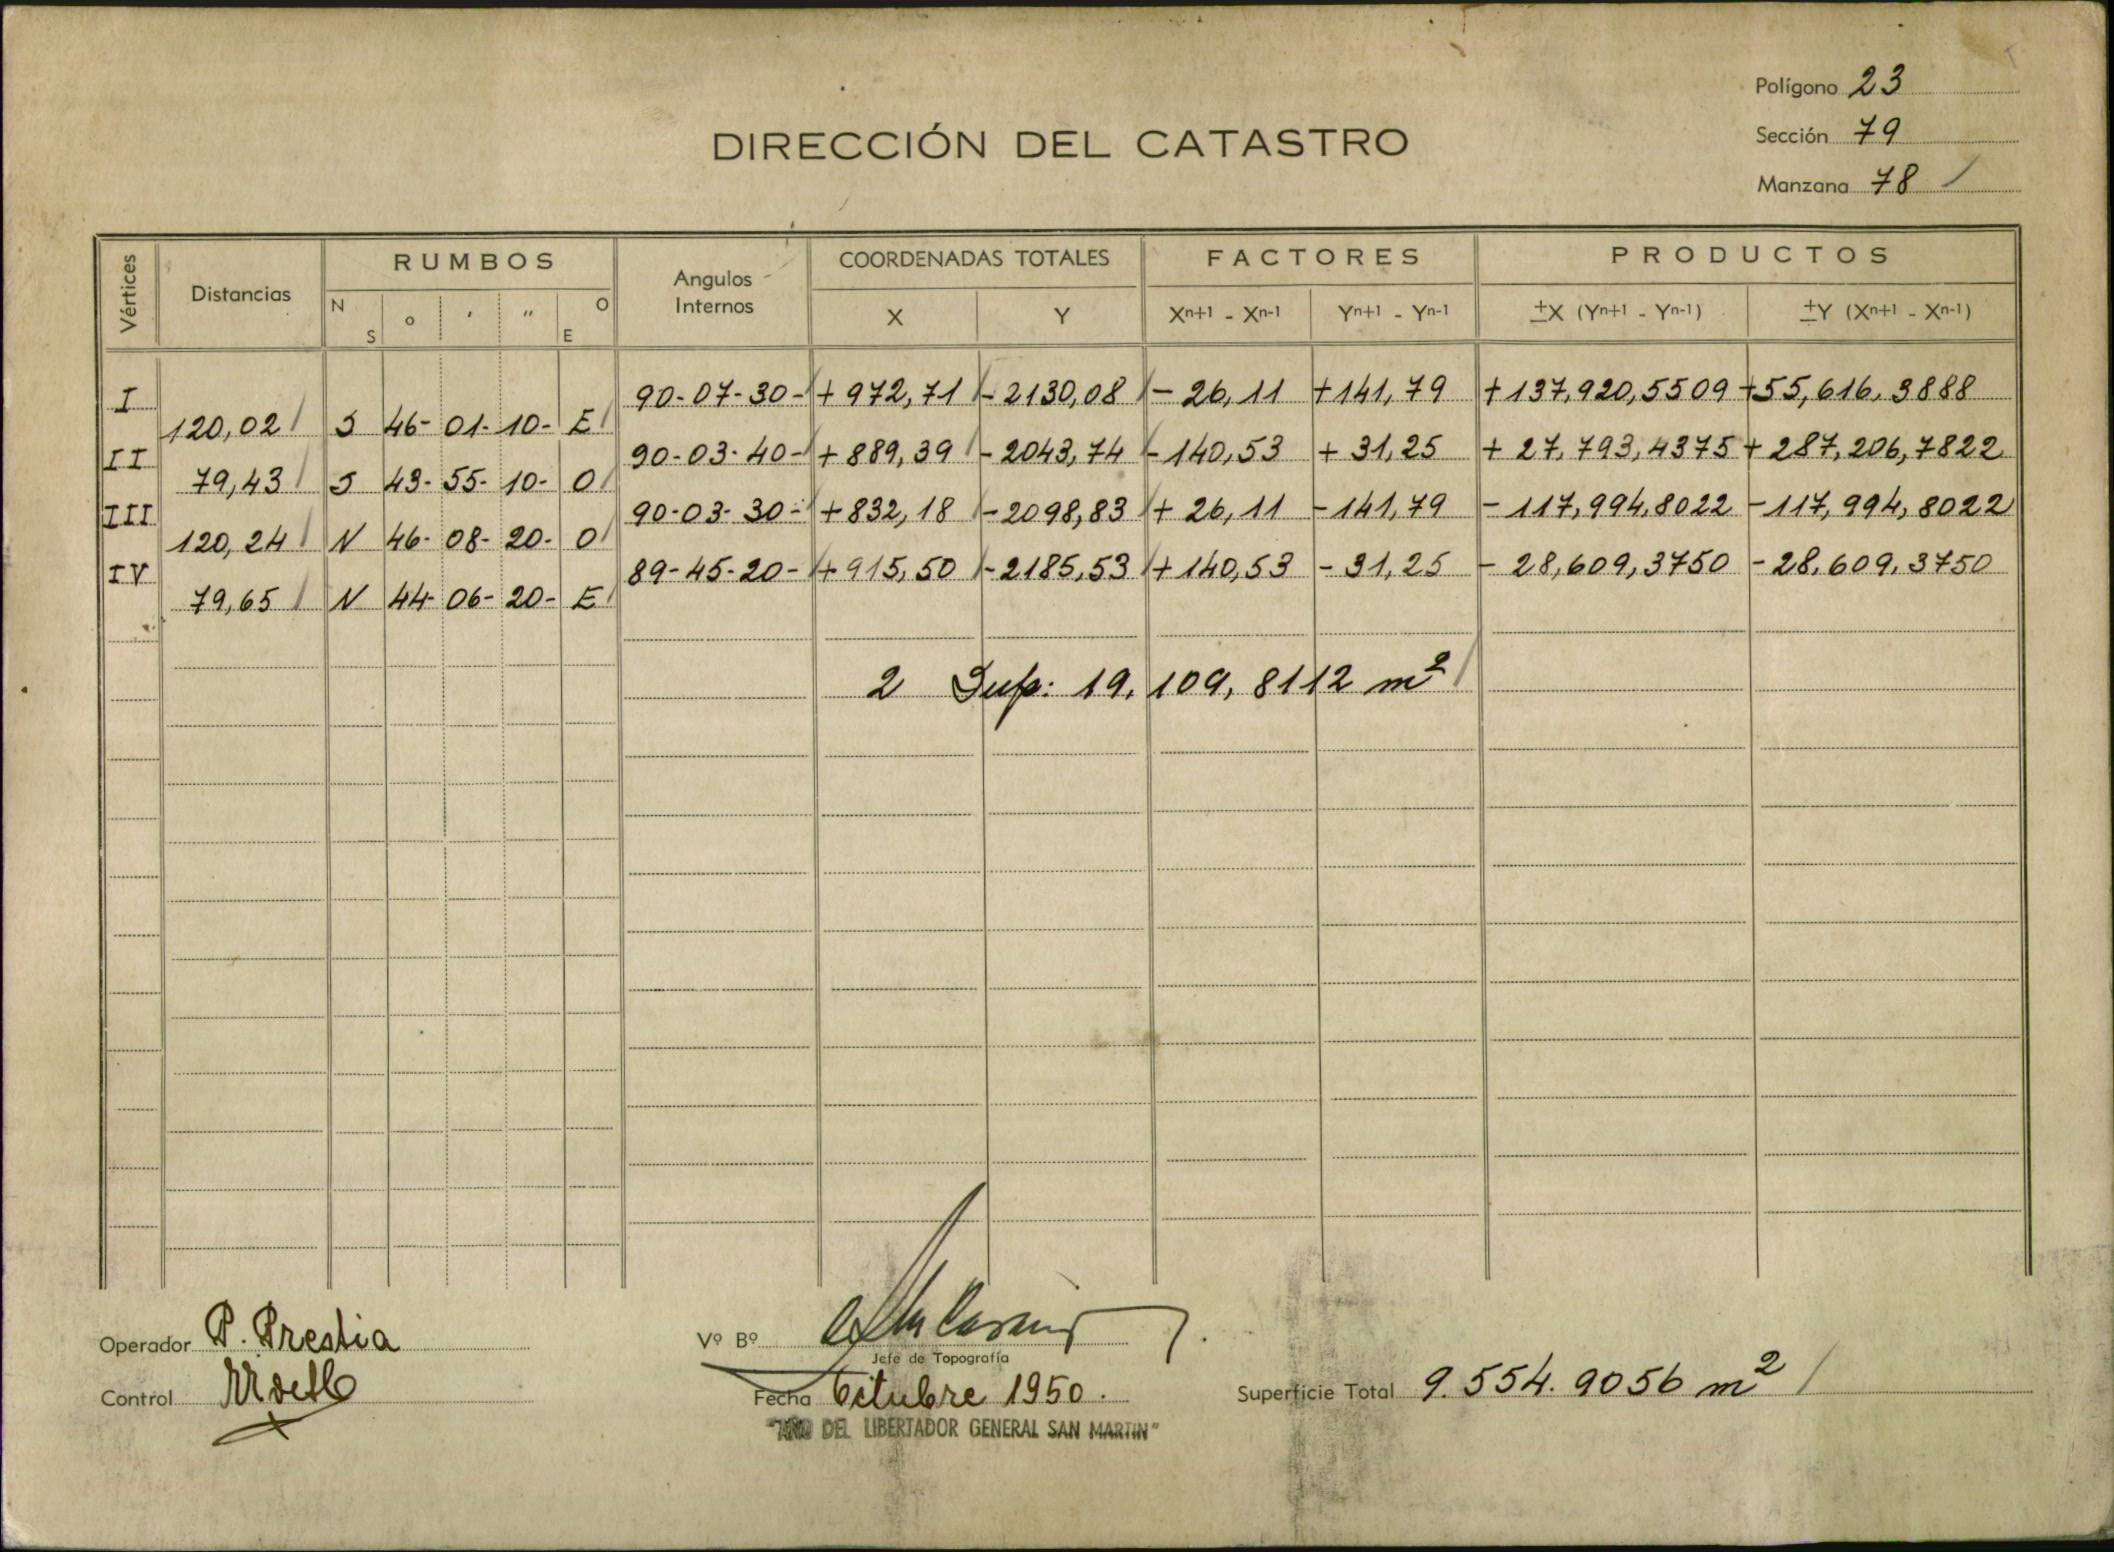 Polígono 23
DIRECCIÓN DEL CATASTRO
Sección 79
Manzana 78 /
Vértices Distancias RUMBOS Angulos Internos COORDENADAS TOTALES FACTORES PRODUCTOS
N S o ' '' O E X Y Xn+1 - Xn-1 Yn+1 - Yn-1 ±X (Yn+1 - Yn-1) ±Y (Xn+1 - Xn-1)
I 90-07-30- +972,71 -2130,08 -26,11 +141,79 +137,920,5509 +55,616,3888
120,02 S 46- 01- 10- E
II 90-03-40- +889,39 -2043,74 -140,53 +31,25 +27,793,4375 +287,206,7822
79,43 S 43- 55- 10- O
III 90-03-30- +832,18 -2098,83 +26,11 -141,79 -117,994,8022 -117,994,8022
120,24 N 46- 08- 20- O
IV 89-45-20- +915,50 -2185,53 +140,53 -31,25 -28,609,3750 -28,609,3750
79,65 N 44- 06- 20- E
2 Sup: 19,109,8112 m²
Operador P. Prestia
Vº Bº
Jefe de Topografía
Control
Fecha Octubre 1950.
Superficie Total 9.554.9056 m²
"AÑO DEL LIBERTADOR GENERAL SAN MARTIN"